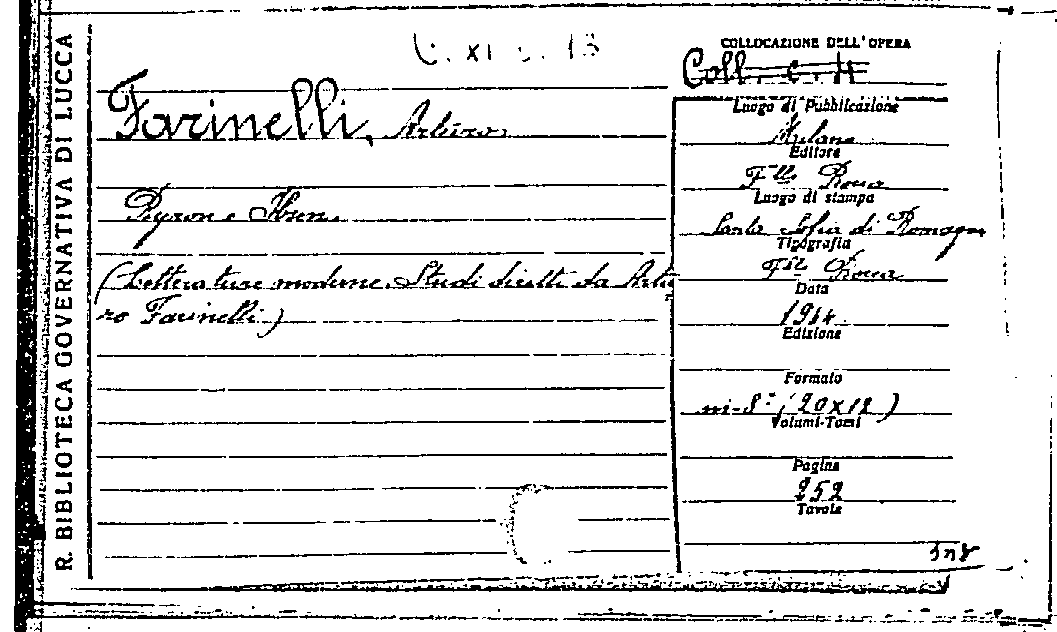 R. BIBLIOTECA GOVERNATIVA DI LUCCA
C. XI. c. 13
COLLOCAZIONE DELL'OPERA
Coll. c. H
Farinelli, Arturo.
Byron e Ibsen.
(Letterature moderne. Studi diretti da Artu
ro Farinelli)
Luogo di Pubblicazione
Milano
Editore
F.lli Bocca
Luogo di stampa
Santa Sofia di Romagna
Tipografia
F.lli Bocca
Data
1914
Edizione
Formato
in-8° (20x12)
Volumi-Tomi
Pagine
252
Tavole